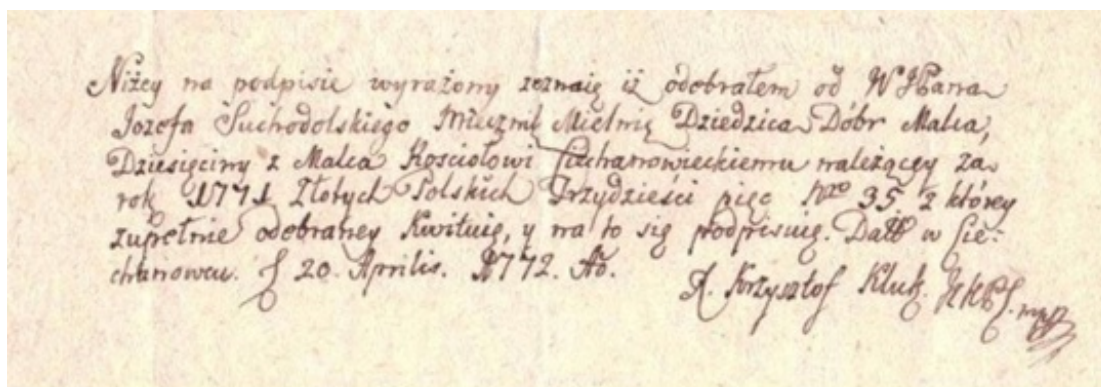 Niżey na podpisie wyrażony zeznaię iż odobrałem od W JPana
Jozefa Suchodolskiego Mielnię Dziedzica Dóbr Malca,
Dziesięciny z Malca Kosciołowi Ciechanowieckiemu należącey za
rok 1771 Złotych Polskich Trzydzieści pięc Nro 35 z którey
zupełnie odobraney Kwituię, y na to się podpisuię. Datt w Cie:
chanowcu. 20. Aprilis. 1772. Ao.
X. Krzysztof Kluk. mpp